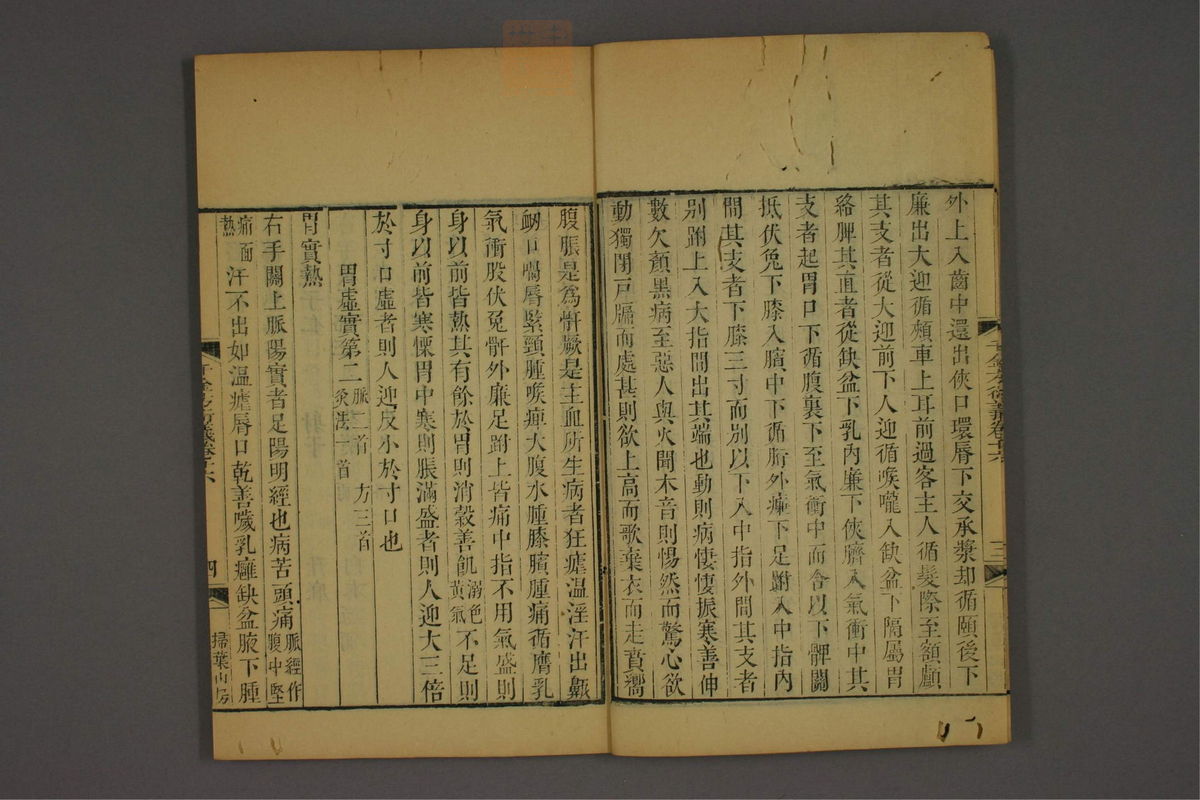 外上入齒中還出俠口環唇下交承漿却循頤後下
廉出大迎循頰車上耳前過客主人循髮際至額顱
其支者從大迎前下人迎循喉嚨入缺盆下隔屬胃
絡脾其直者從缺盆下乳內廉下俠臍入氣衝中其
支者起胃口下循腹裏下至氣衝中而合以下髀關
抵伏兔下膝入臏中下循脛外廉下足跗入中指內
間其支者下膝三寸而別以下入中指外間其支者
別跗上入大指間出其端也動則病悽悽振寒善伸
數欠顏黑病至惡人與火聞木音則惕然而驚心欲
動獨閉戶牖而處甚則欲上高而歌棄衣而走賁嚮
三
腹脹是為骭厥是主血所生病者狂瘧溫淫汗出鼽
衂口喎唇緊頸腫喉痺大腹水腫膝臏腫痛循膺乳
氣衝股伏兔骭外廉足跗上皆痛中指不用氣盛則
身以前皆熱其有餘於胃則消穀善飢溺色黃氣不足則
身以前皆寒慄胃中寒則脹滿盛者則人迎大三倍
於寸口虛者則人迎反小於寸口也
胃虛實第二 脈二首 方三首 灸法一首
胃實熱
右手關上脈陽實者足陽明經也病苦頭痛脈經作腹中堅
痛面熱汗不出如溫瘧唇口乾善噦乳癰缺盆腋下腫
四
掃葉山房